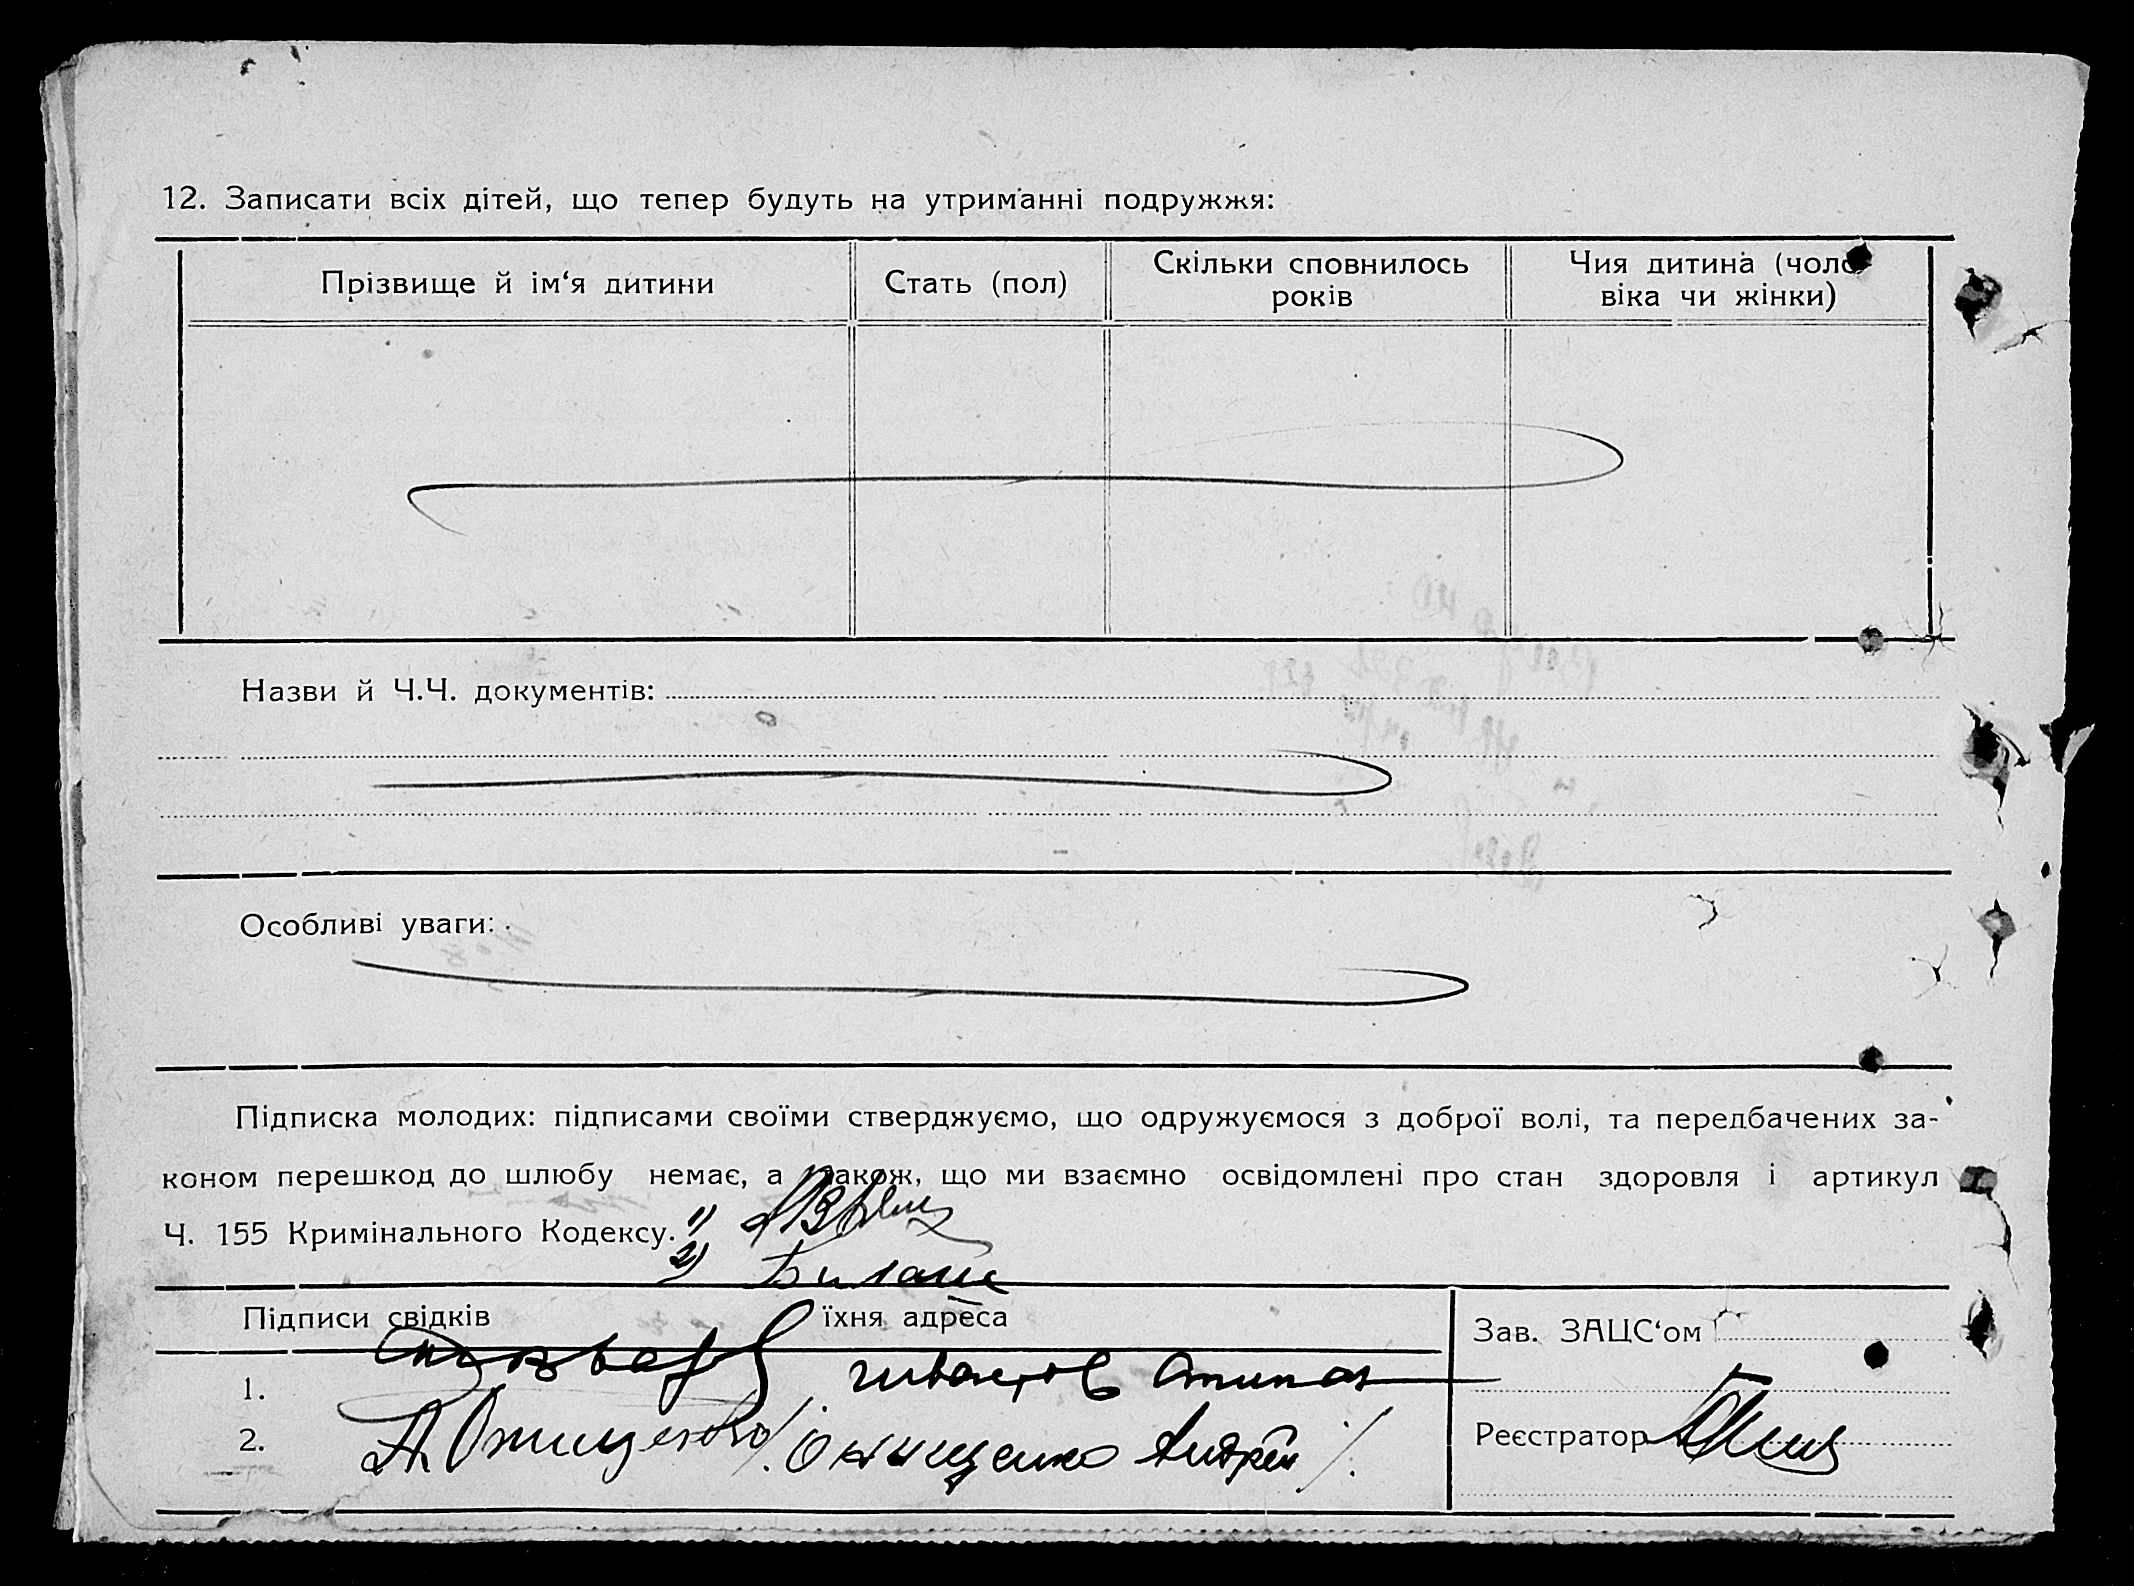 12. Записати всіх дітей, що тепер будуть на утриманні подружжя:
Прізвище й ім‘я дитини
Стать (пол)
Скільки сповнилось
років
Чия дитина (чоло-
віка чи жінки)
Назви й Ч.Ч. документів:
Особливі уваги:
Підписка молодих: підписами своїми стверджуємо, що одружуємося з доброї волі, та передбачених за-
коном перешкод до шлюбу немає, а також, що ми взаємно освідомлені про стан здоровля і артикул
Ч. 155 Кримінального Кодексу. 1)
2)
Підписи свідків їхня адреса
1.
2. А. Онищенко /. Онищенко Андрей /.
Зав. ЗАЦС‘ом
Реєстратор